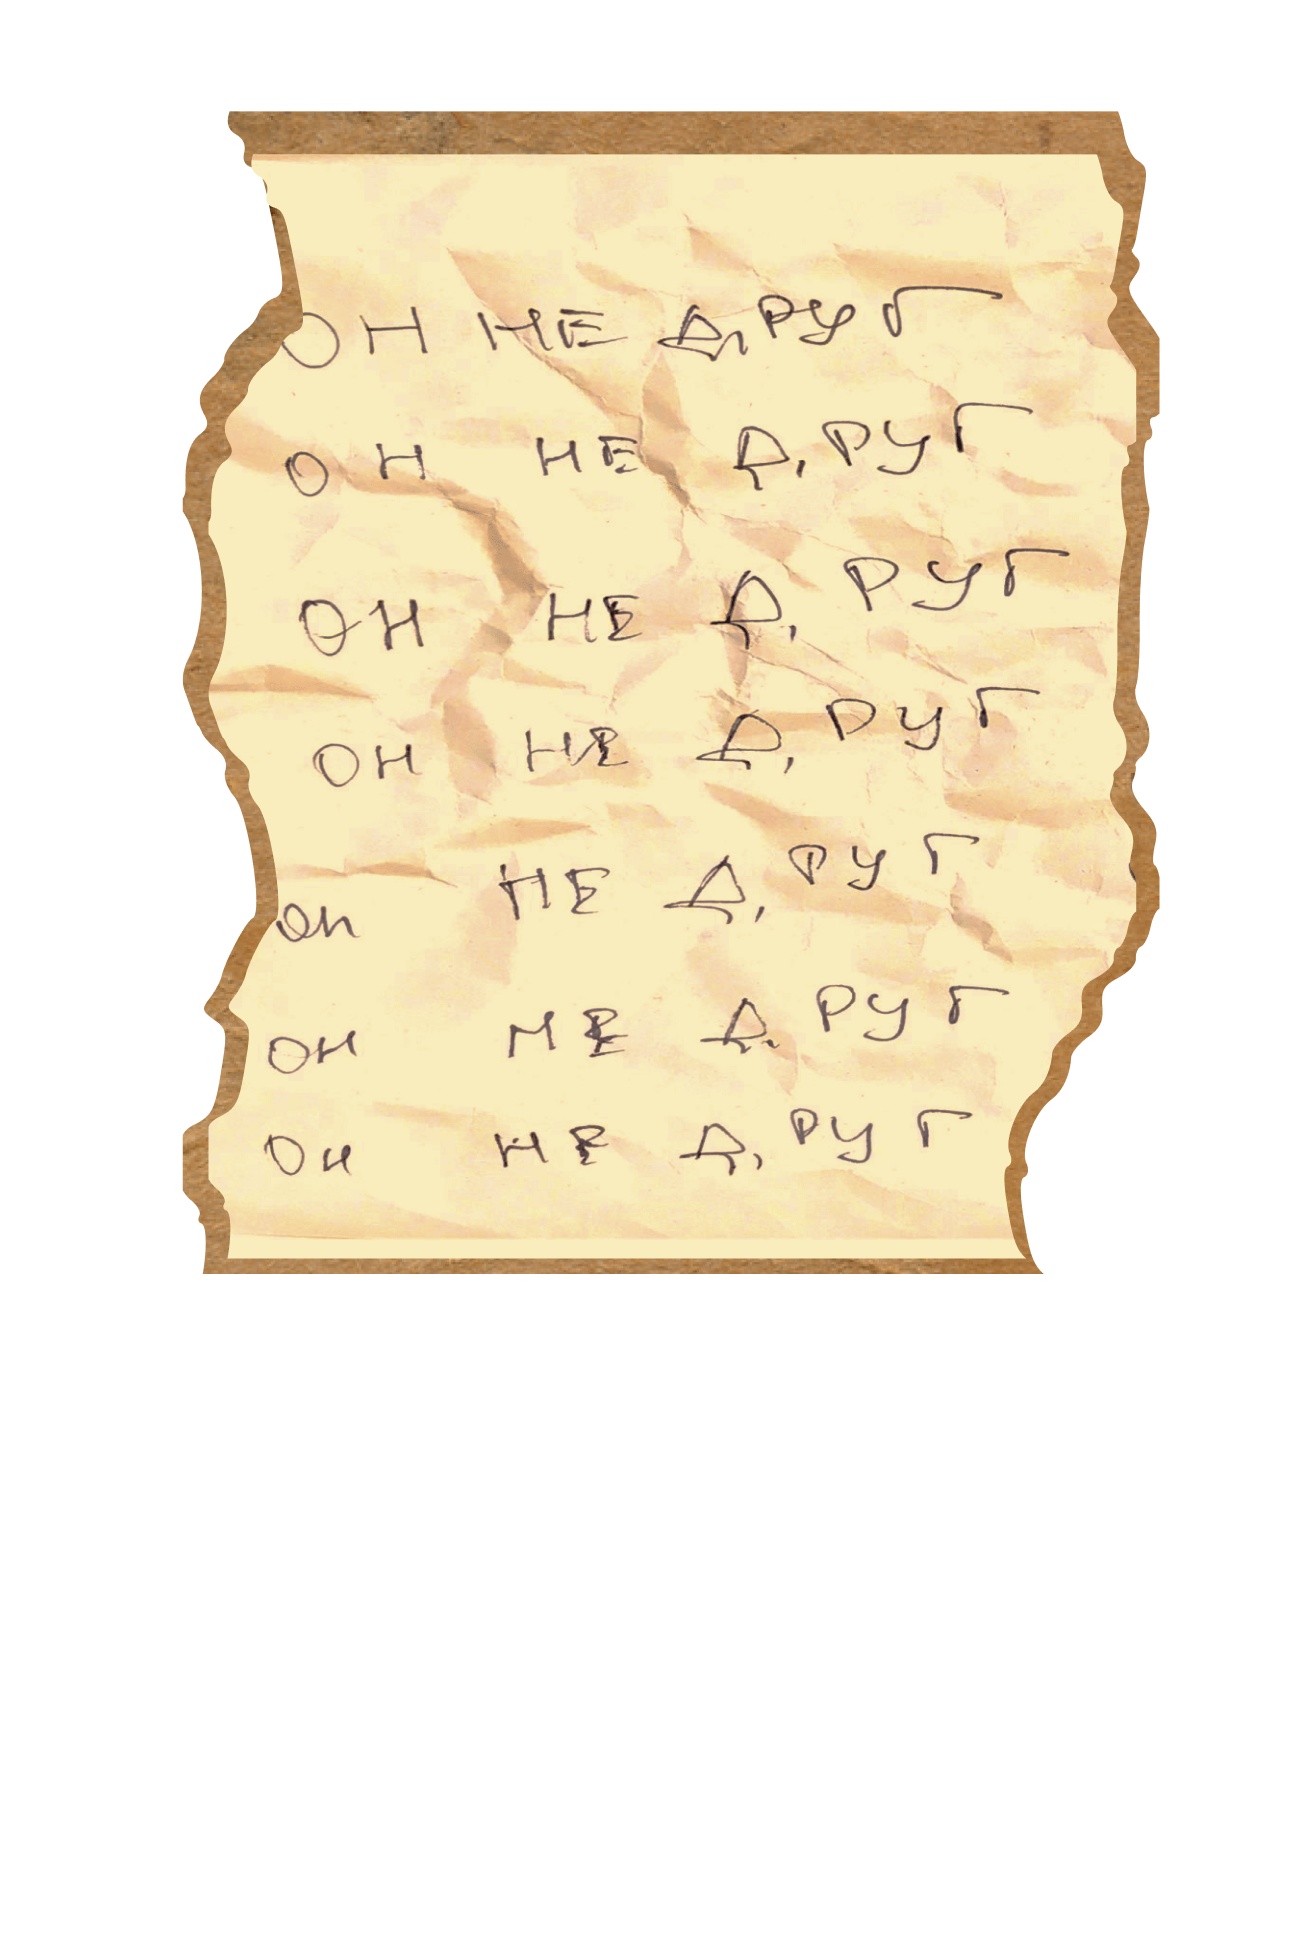 ОН НЕ ДРУГ
ОН НЕ ДРУГ
ОН НЕ ДРУГ
ОН НЕ ДРУГ
ОН НЕ ДРУГ
ОН НЕ ДРУГ
ОН НЕ ДРУГ